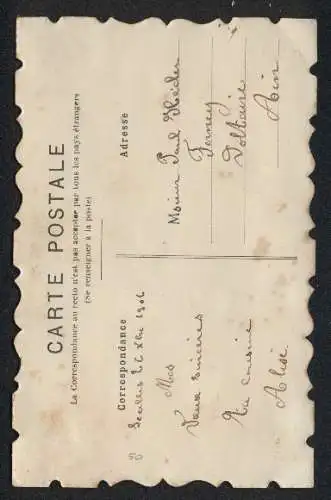 CARTE POSTALE
La Correspondance au recto n'est pas acceptée par tous les pays étrangers
(Se renseigner à la poste)
Correspondance
1906
Mes
Vœux sincères
Ta cousine
Alise
Adresse
Monsieur Paul
Ferney
Voltaire
Ain